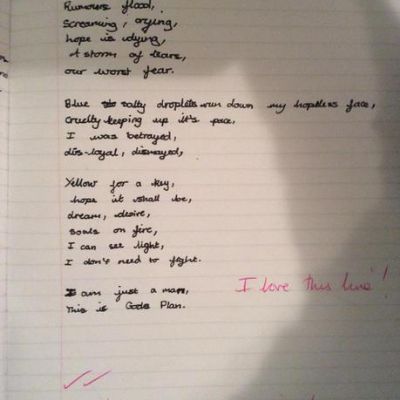 Rumours flood,
Screaming, crying,
hope is dying,
A storm of tears,
our worst fear.
Blue salty droplets run down my hopeless face,
Cruelty keeping up it's pace,
I was betrayed,
dis-loyal, dismayed,
Yellow for a key,
hope it shall be,
dream, desire,
souls on fire,
I can see light,
I don't need to fight.
I am just a man,
This is Gods Plan.
I love this line!